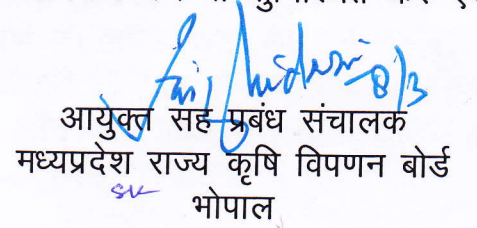 8/3
आयुक्त सह प्रबंध संचालक
मध्यप्रदेश राज्य कृषि विपणन बोर्ड
भोपाल